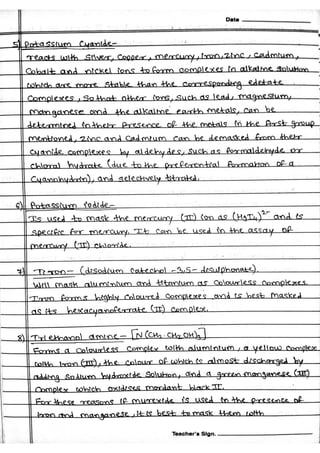 Date
5) Potassium Cyanide-
reacts with Silver, Copper, mercury, Iron, Zinc, Cadmium,
Cobalt and nickel ions to form complexes in alkaline solution
which are more stable than the corresponding edetate
Complexes, So that other ions, such as lead, magnesium,
manganese and the alkaline earth metals, can be
determined in their presence. Of the metals in the first group
mentioned, zinc and Cadmium can be demasked from their
cyanide complexes by aldehydes, such as formaldehyde or
chloral hydrate (due to the preferential formation of a
Cyanohydrin), and selectively titrated.
6) Potassium iodide-
Is used to mask the mercury (II) ion as (HgI₄)²⁻ and is
specific for mercury. It can be used in the assay of
mercury (II) chloride.
7) Tiron- (disodium catechol -3,5- disulphonate).
Will mask aluminium and titanium as colourless complexes.
Iron forms highly coloured complexes and is best masked
as its hexacyanoferrate (II) complex.
8) Triethanol amine- [N(CH₂.CH₂OH)₃]
Forms a colourless complex with aluminium, a yellow complex
with iron (III), the colour of which is almost discharged by
adding Sodium hydroxide Solution, and a green manganese (III)
Complex which oxidises mordant black II.
For these reasons if murexide is used in the presence of
iron and manganese, it is best to mask them with
Teacher's Sign.